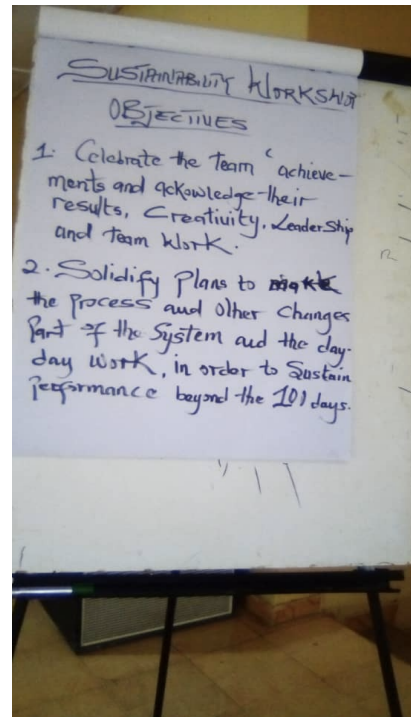 SUSTAINABILITY WORKSHOP
OBJECTIVES
1. Celebrate the Team ' achieve-
ments and acknowledge their
results, Creativity, Leadership
and Team Work.
2. Solidify plans to make
the Process and Other Changes
Part of the System and the day-
day work, in order to Sustain
Performance beyond the 101 days.